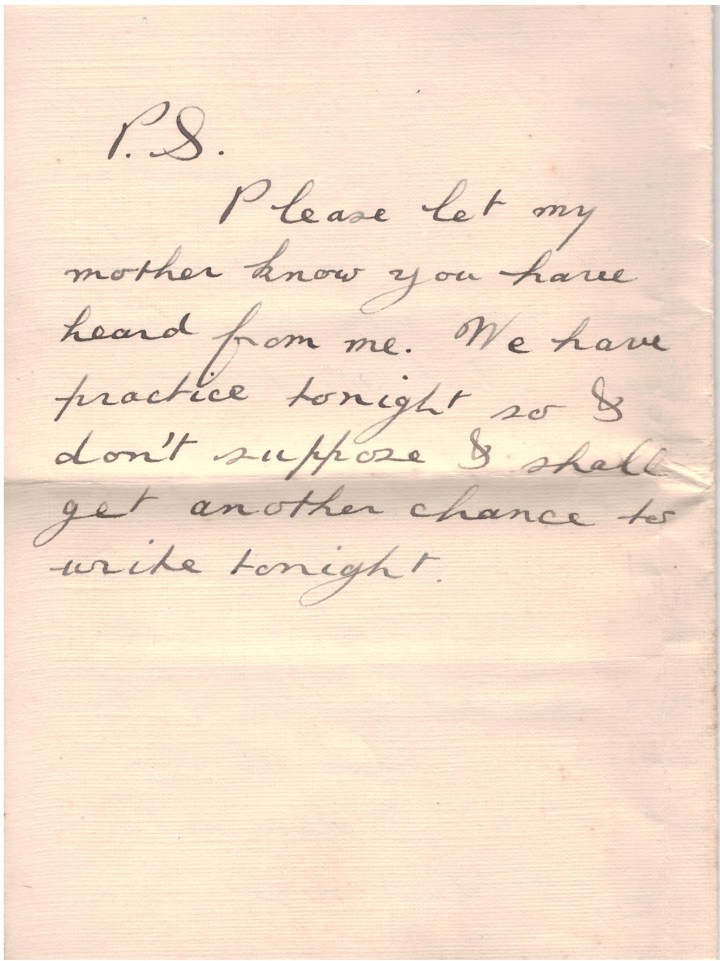 P.S.
Please let my
mother know you have
heard from me. We have
practice tonight so I
don't suppose I shall
get another chance to
write tonight.